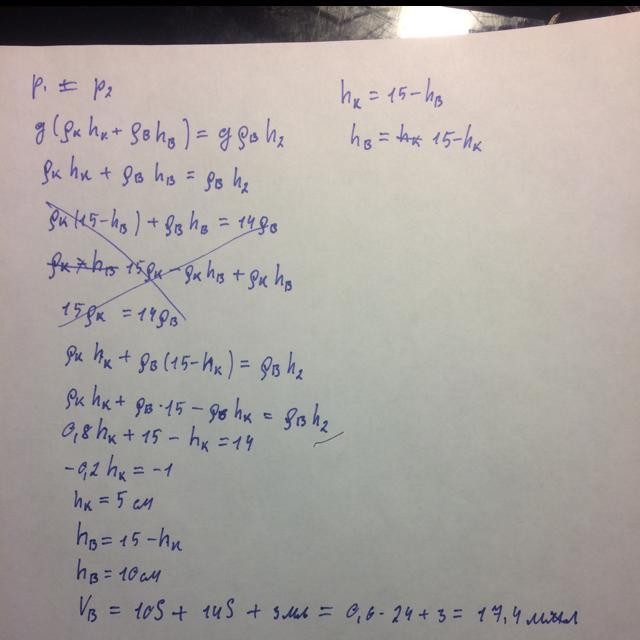 p₁ = p₂
hк = 15 - hв
g(ρк hк + ρв hв) = g ρв h₂
hв = hк 15 - hк
ρк hк + ρв hв = ρв h₂
ρк(15 - hв) + ρв hв = 14ρв
15ρк - ρк hв + ρк hв
15ρк = 14ρв
ρк hк + ρв(15 - hк) = ρв h₂
ρк hк + ρв·15 - ρв hк = ρв h₂
0,8hк + 15 - hк = 14
-0,2hк = -1
hк = 5 см
hв = 15 - hк
hв = 10 см
Vв = 10S + 14S + 3мл = 0,6·24 + 3 = 17,4 мл